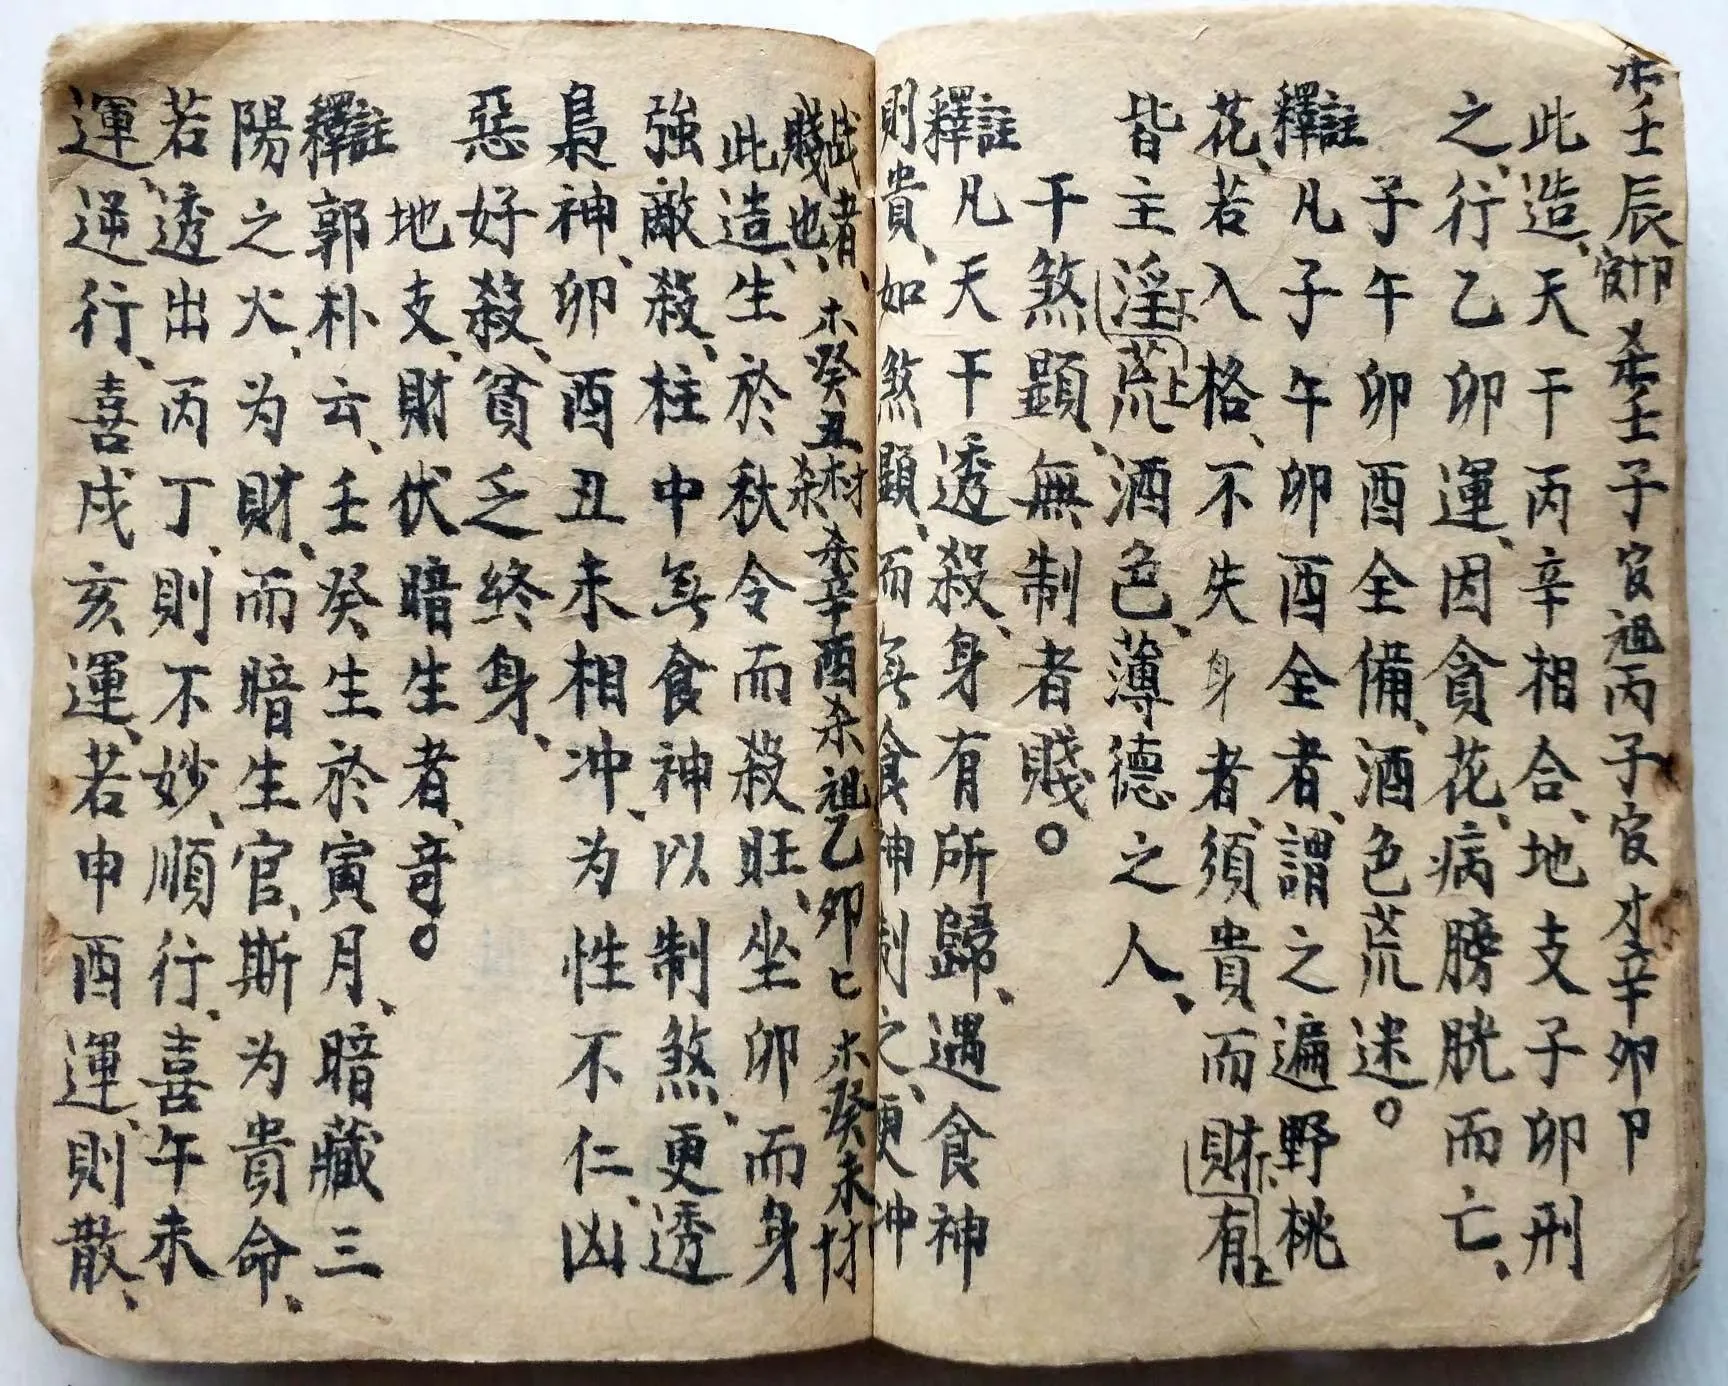 壬辰 壬子官祖丙子官才辛卯卩
此造、天干丙辛相合、地支子卯刑
之、行乙卯運、因貪花、病膀胱而亡、
子午卯酉全備、酒色荒迷。
釋註凡子午卯酉全者、謂之遍野桃
花、若入格、不失身者、須貴而財有
皆主淫荒、酒色、薄德之人、
干煞顯、無制者賤。
釋註凡天干透殺、身有所歸、遇食神
則貴、如煞顯、而無食神制之、更冲
战者、賤也、 癸丑 辛酉杀祖乙卯 癸未
此造、生於秋令而殺旺、坐卯而身
強敵殺、柱中無食神以制煞、更透
梟神、卯酉丑未相冲、为性不仁、凶
惡好殺、貧乏終身、
地支、財伏暗生者、奇。
釋註郭朴云、壬癸生於寅月、暗藏三
陽之火、为財、而暗生官、斯为貴命、
若透出丙丁、則不妙、順行、喜午未
運、逆行、喜戌亥運、若申酉運、則散、